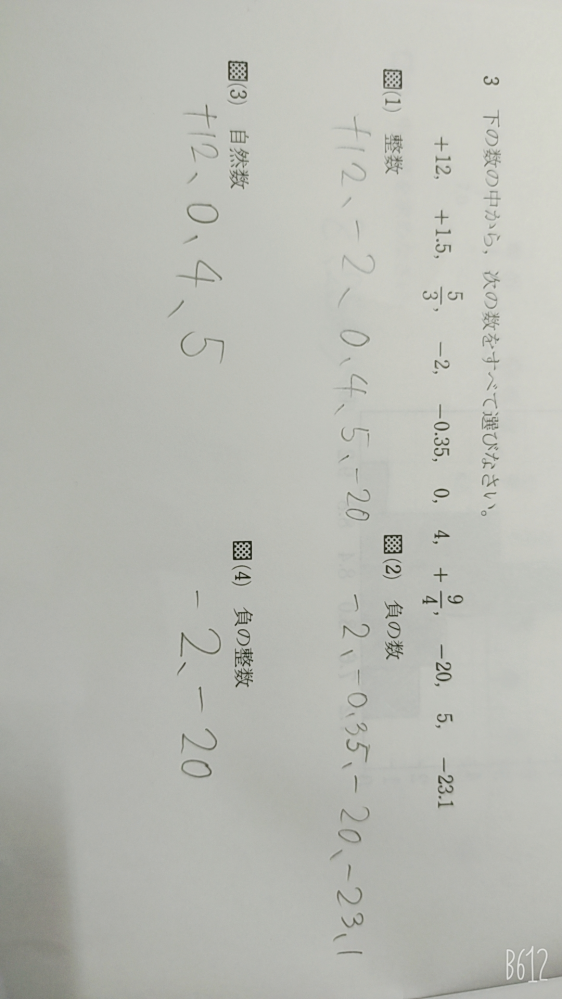 3 下の数の中から，次の数をすべて選びなさい。
+12, +1.5, 5/3, −2, −0.35, 0, 4, +9/4, −20, 5, −23.1
(1) 整数
+12、−2、0、4、5、−20
(2) 負の数
−2、−0.35、−20、−23.1
(3) 自然数
+12、0、4、5
(4) 負の整数
−2、−20
B612